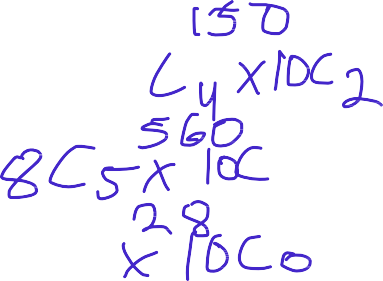 150
C4 x 10C2
560
8C5 x 10C
28
x 10C0